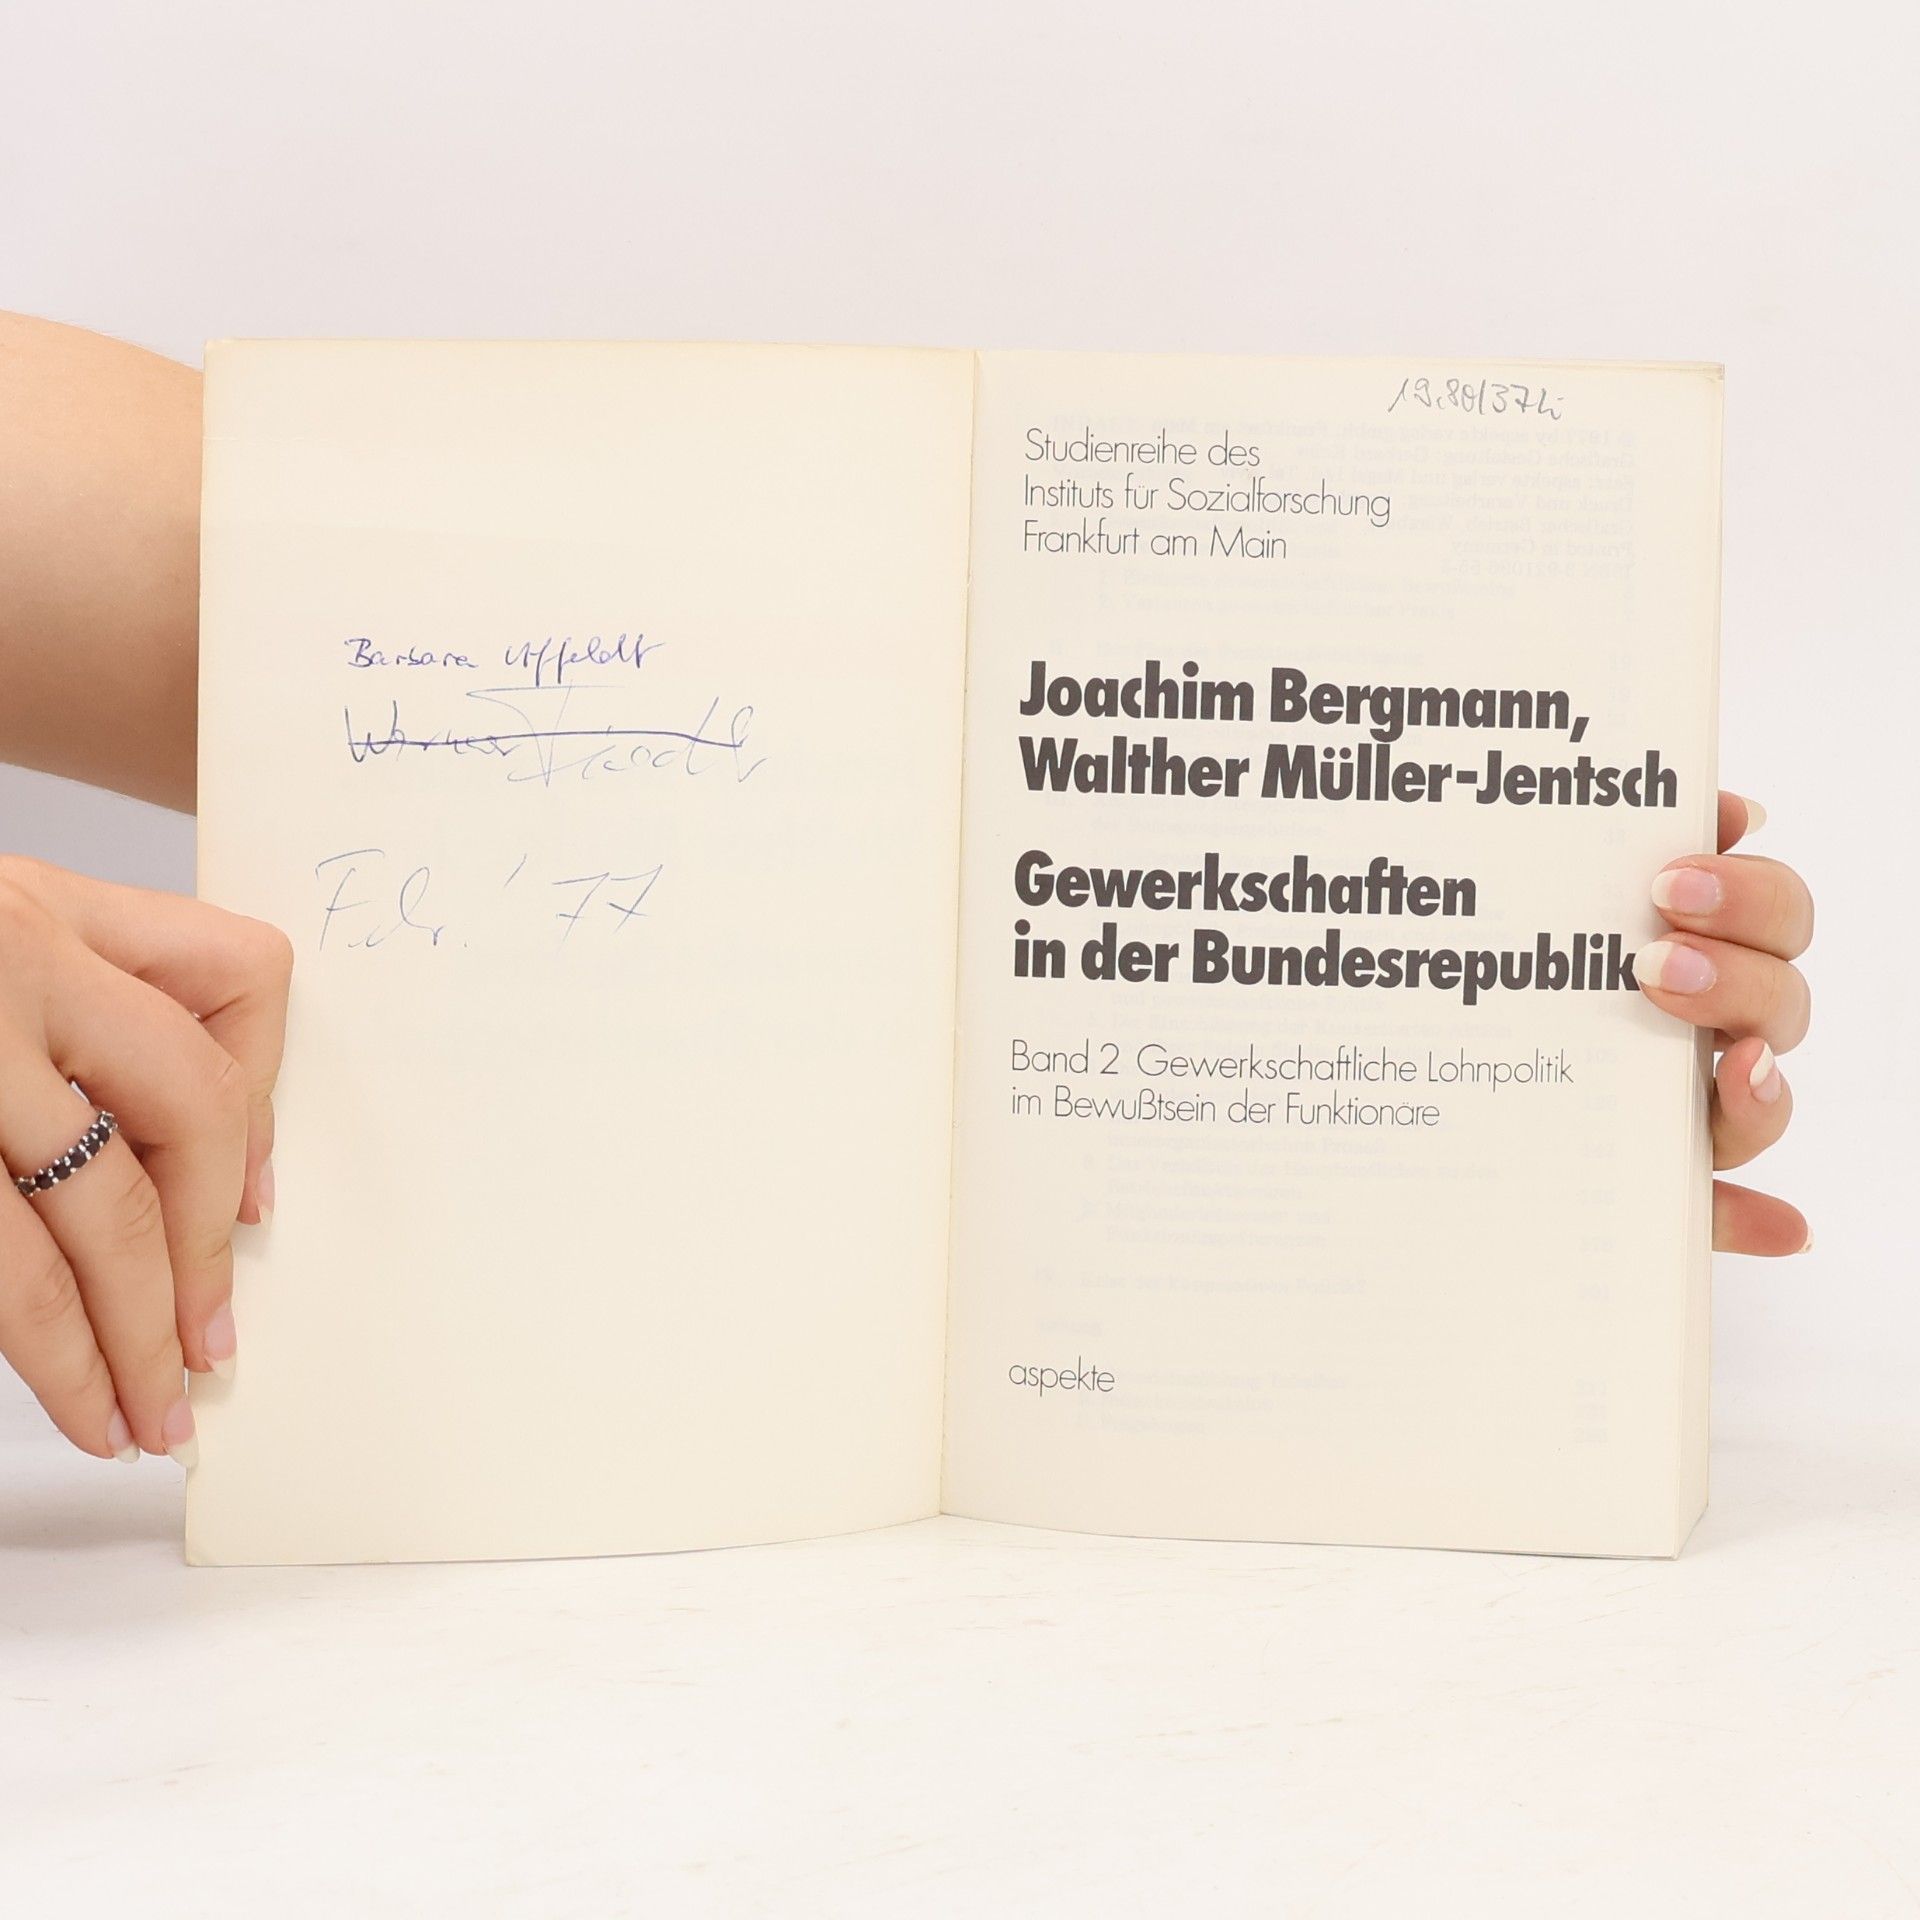 Barbara Uffeldt
Werner
Febr. '77
19,80/37
Studienreihe des
Instituts für Sozialforschung
Frankfurt am Main
Joachim Bergmann,
Walther Müller-Jentsch
Gewerkschaften
in der Bundesrepublik
Band 2 Gewerkschaftliche Lohnpolitik
im Bewußtsein der Funktionäre
aspekte